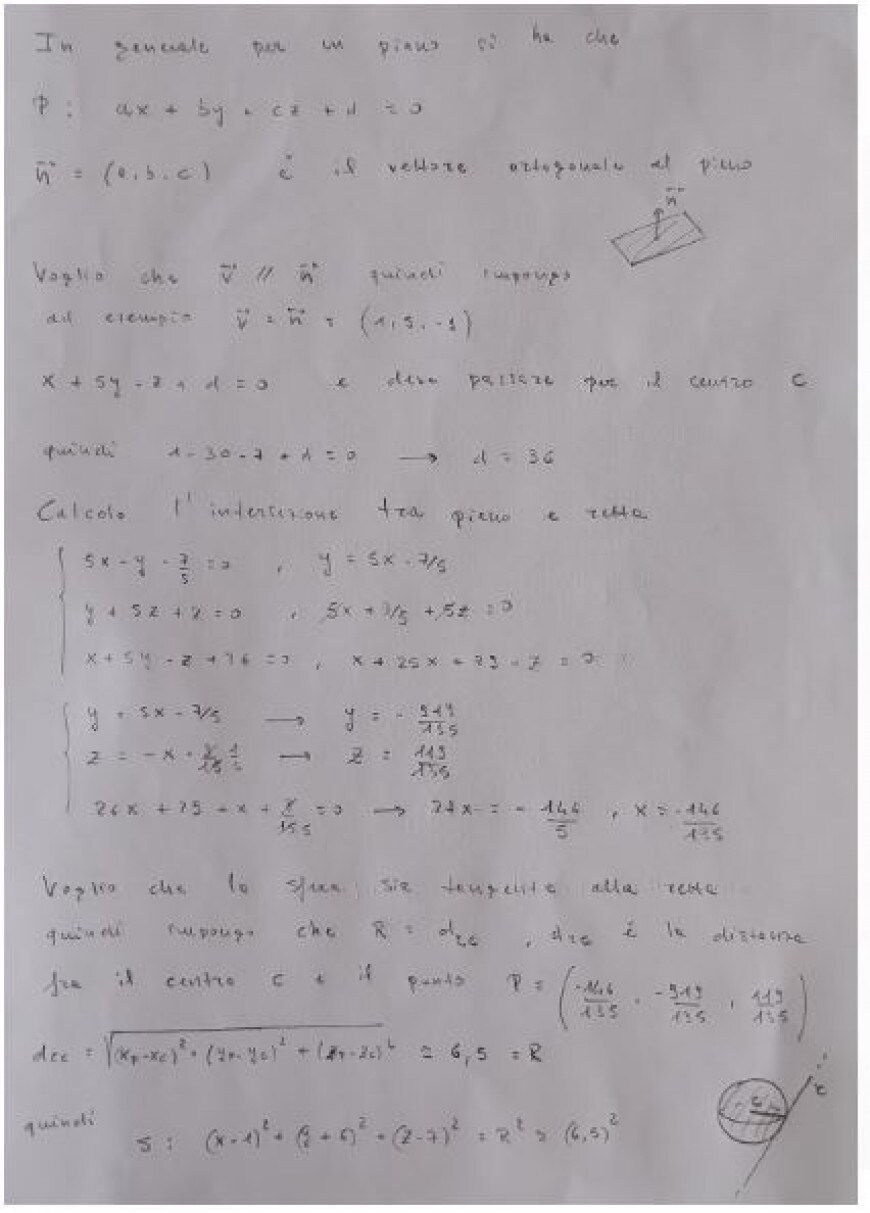 In generale per un piano si ha che
P : ax + by + cz + d = 0
n⃗ = (a, b, c) è il vettore ortogonale al piano
n⃗
Voglio che v⃗ // n⃗ quindi impongo
ad esempio v⃗ = n⃗ = (1, 5, -1)
x + 5y - z + d = 0 e deve passare per il centro C
quindi 1 - 30 - 7 + d = 0 → d = 36
Calcolo l'intersezione tra piano e retta
5x - y - 7/5 = 0 , y = 5x - 7/5
y + 5z + 2 = 0 , 5x + 3/5 + 5z = 0
x + 5y - z + 36 = 0 , x + 25x + 29 - z = 0
y = 5x - 7/5 → y = - 919/135
z = - x → z = 119/135
26x + 29 + x + = 0 → 27x = - 146/5 , x = - 146/135
Voglio che la sfera sia tangente alla retta
quindi impongo che R = drc , drc è la distanza
fra il centro C e il punto P = (-146/135 , -919/135 , 119/135)
drc = √(xp-xc)² + (yp-yc)² + (zp-zc)² ≃ 6,5 = R
quindi
S : (x-1)² + (y+6)² + (z-7)² = R² ≃ (6,5)²
c
r